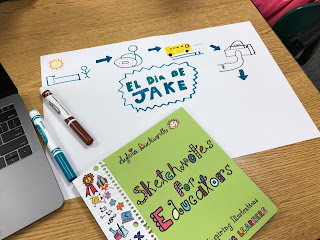 EL DIA DE
JAKE
Sylvia Duckworth
Sketchnotes
for
Educators
Inspiring Illustrations
LEARNERS